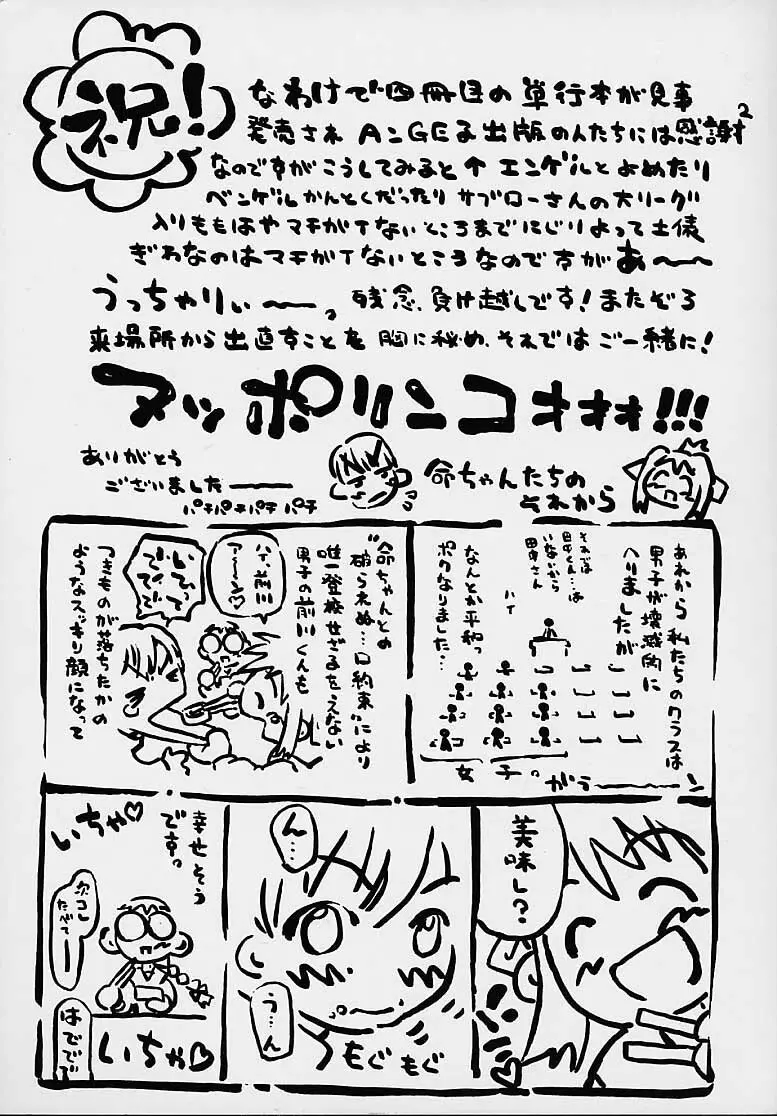 祝!
なわけで四冊目の単行本が見事
発売され AンGEる出版の人たちには感謝2
なのですがこうしてみると↑エンゲルとよめたり
ベンゲルかんとくだったり サブローさんの大リーグ
入りももはやマチガイないところまでにじりよって土俵
ぎわなのはマチガイないところなのですがあ〜〜
うっちゃりぃーーっ 残念、負け越しです!またぞろ
来場所から出直すことを胸に秘め、それではご一緒に!
マッポリンコォォォ!!!
ありがとう
ございましたーーー
パチパチパチパチ
命ちゃんたちの
それから
あれから私たちのクラスは
男子が壊滅的に
へりましたが
それでは
田中くん…は
いないから
田中さん
ハイ
なんとか平和っ
ポクなりました…
女子っ
がらーーーーン
"命ちゃんとの
破らえぬ…口約束"により
唯一登校せざるをえない
男子の前川くんも
ハイ、前川
アーーン♡
つきものが落ちたかの
ようなスッキリ顔になって
美味し?
ん…
う…ん
もぐもぐ
幸せそう
ですっ
いちゃ♡
次コレ
たべてーー
はででで
いちゃ♡